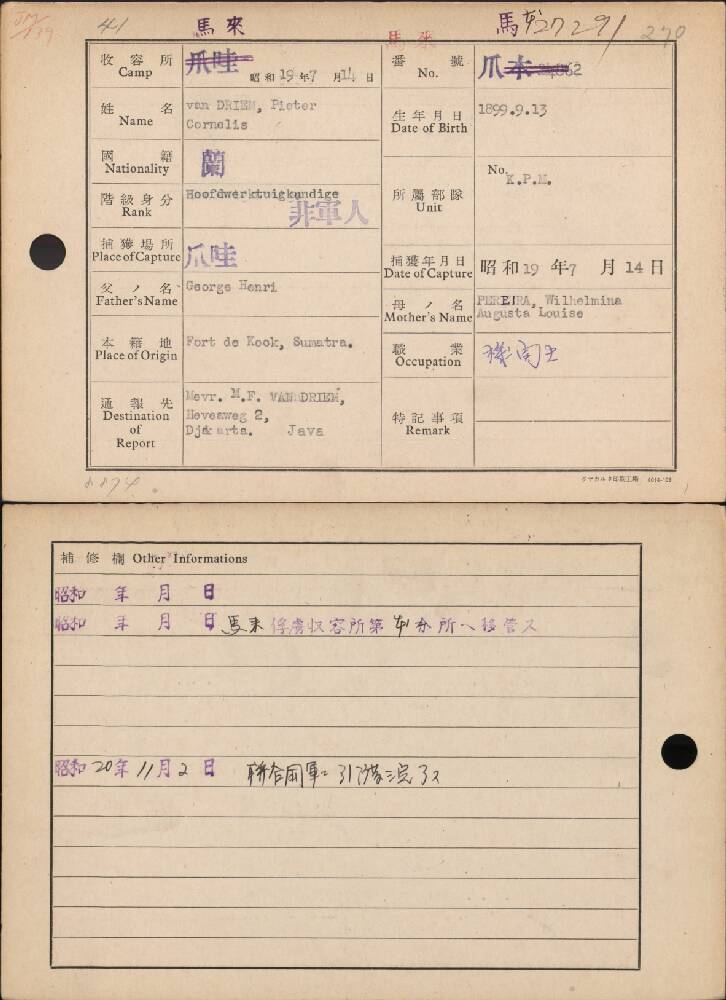 41 馬來 馬來 馬本27291 270
收容所 Camp 爪哇 昭和19年7月14日
番號 No. 爪本
姓名 Name van DRIEM, Pieter
Cornelis
生年月日 Date of Birth 1899.9.13
國籍 Nationality 蘭
階級身分 Rank Hoofdwerktuigkundige
非軍人
所屬部隊 Unit No. K.P.M.
捕獲場所 Place of Capture 爪哇
捕獲年月日 Date of Capture 昭和19年7月14日
父ノ名 Father's Name George Henri
母ノ名 Mother's Name PEREIRA, Wilhelmina
Augusta Louise
本籍地 Place of Origin Fort de Kock, Sumatra.
職業 Occupation 機関士
通報先 Destination of Report Mevr. M.F. VAN DRIEM,
Heveaweg 2,
Djakarta. Java
特記事項 Remark
補修欄 Other Informations
昭和 年 月 日
昭和 年 月 日 馬来俘虜収容所第 分所ヘ移管ス
昭和20年11月2日 聯合国軍ニ引渡済